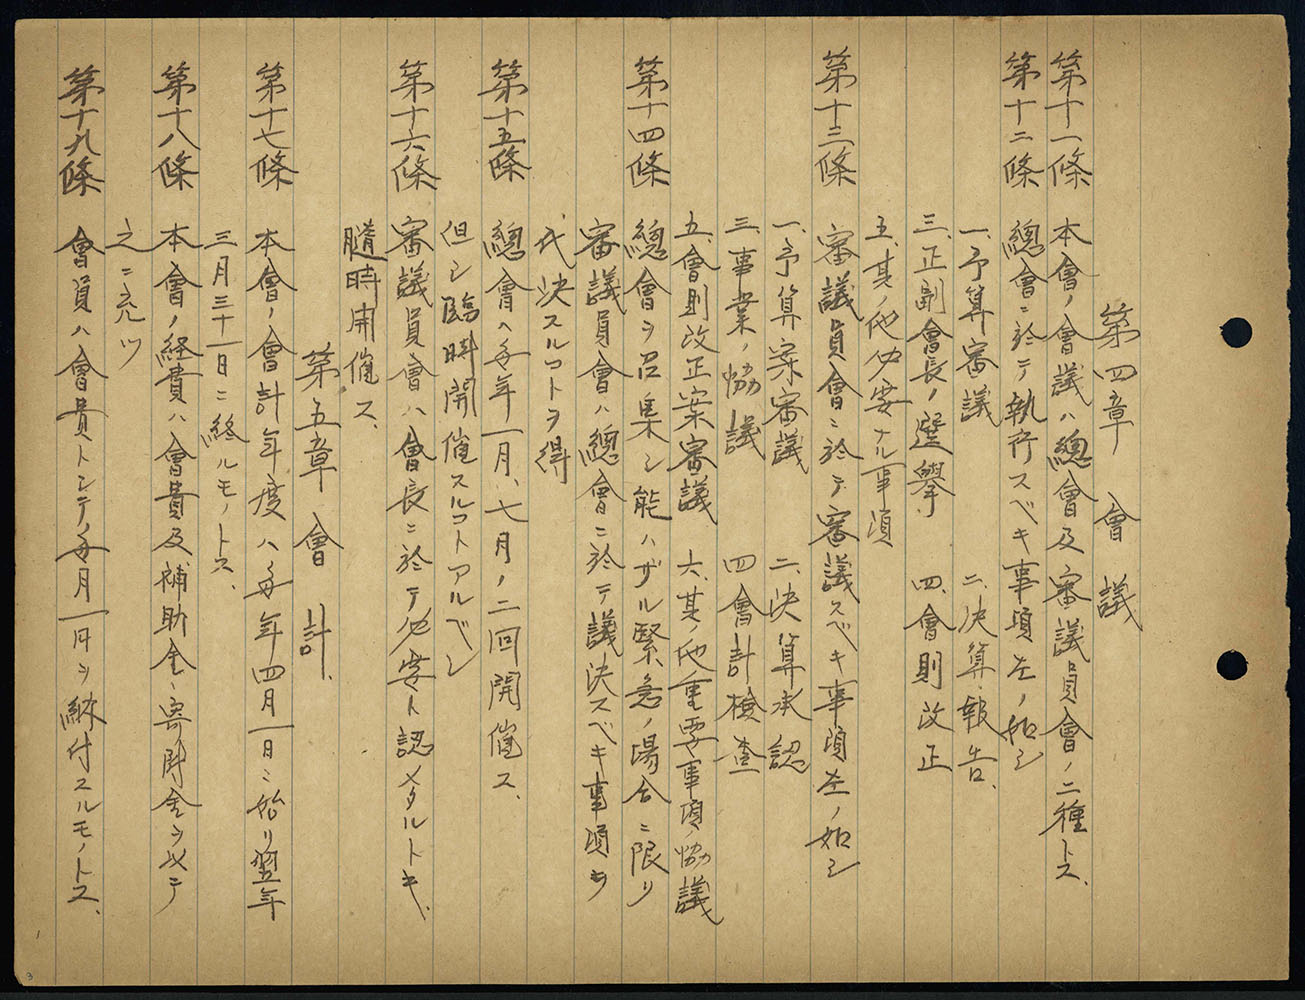 第四章 會議
第十一條 本會ノ會議ハ總會及審議員會ノ二種トス、
第十二條 總會ニ於テ執行スベキ事項左ノ如シ
一、予算審議 二、決算報告、
三、正副會長ノ選擧 四、會則改正
五、其ノ他必要ナル事項
第十三條 審議員會ニ於テ審議スベキ事項左ノ如シ
一、予算案審議 二、決算承認
三、事業ノ協議 四會計檢査
五、會則改正案審議 六、其ノ他重要事項ノ協議
第十四條 總會ヲ召集シ能ハザル緊急ノ場合ニ限リ
審議員會ハ總會ニ於テ議決スベキ事項ヲ
代決スルコトヲ得
第十五條 總會ハ毎年一月、七月ノ二回開催ス、
但シ臨時開催スルコトアルベシ
第十六條 審議員會ハ會長ニ於テ必要ト認メタルトキ、
隨時開催ス、
第五章 會計、
第十七條 本會ノ會計年度ハ毎年四月一日ニ始リ翌年
三月三十一日ニ終ルモノトス、
第十八條 本會ノ経費ハ會費及補助金、寄附金ヲ以テ
之ニ充ツ
第十九條 會員ハ會費トシテ毎月一円ヲ納付スルモノトス、
1
3